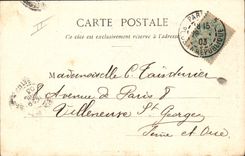 CARTE POSTALE
Ce côté est exclusivement réservé à l'adresse
PARIS
15
03
REPUBLIQUE
Mademoiselle C.
8 Avenue de Paris
Villeneuve St Georges
Seine et Oise